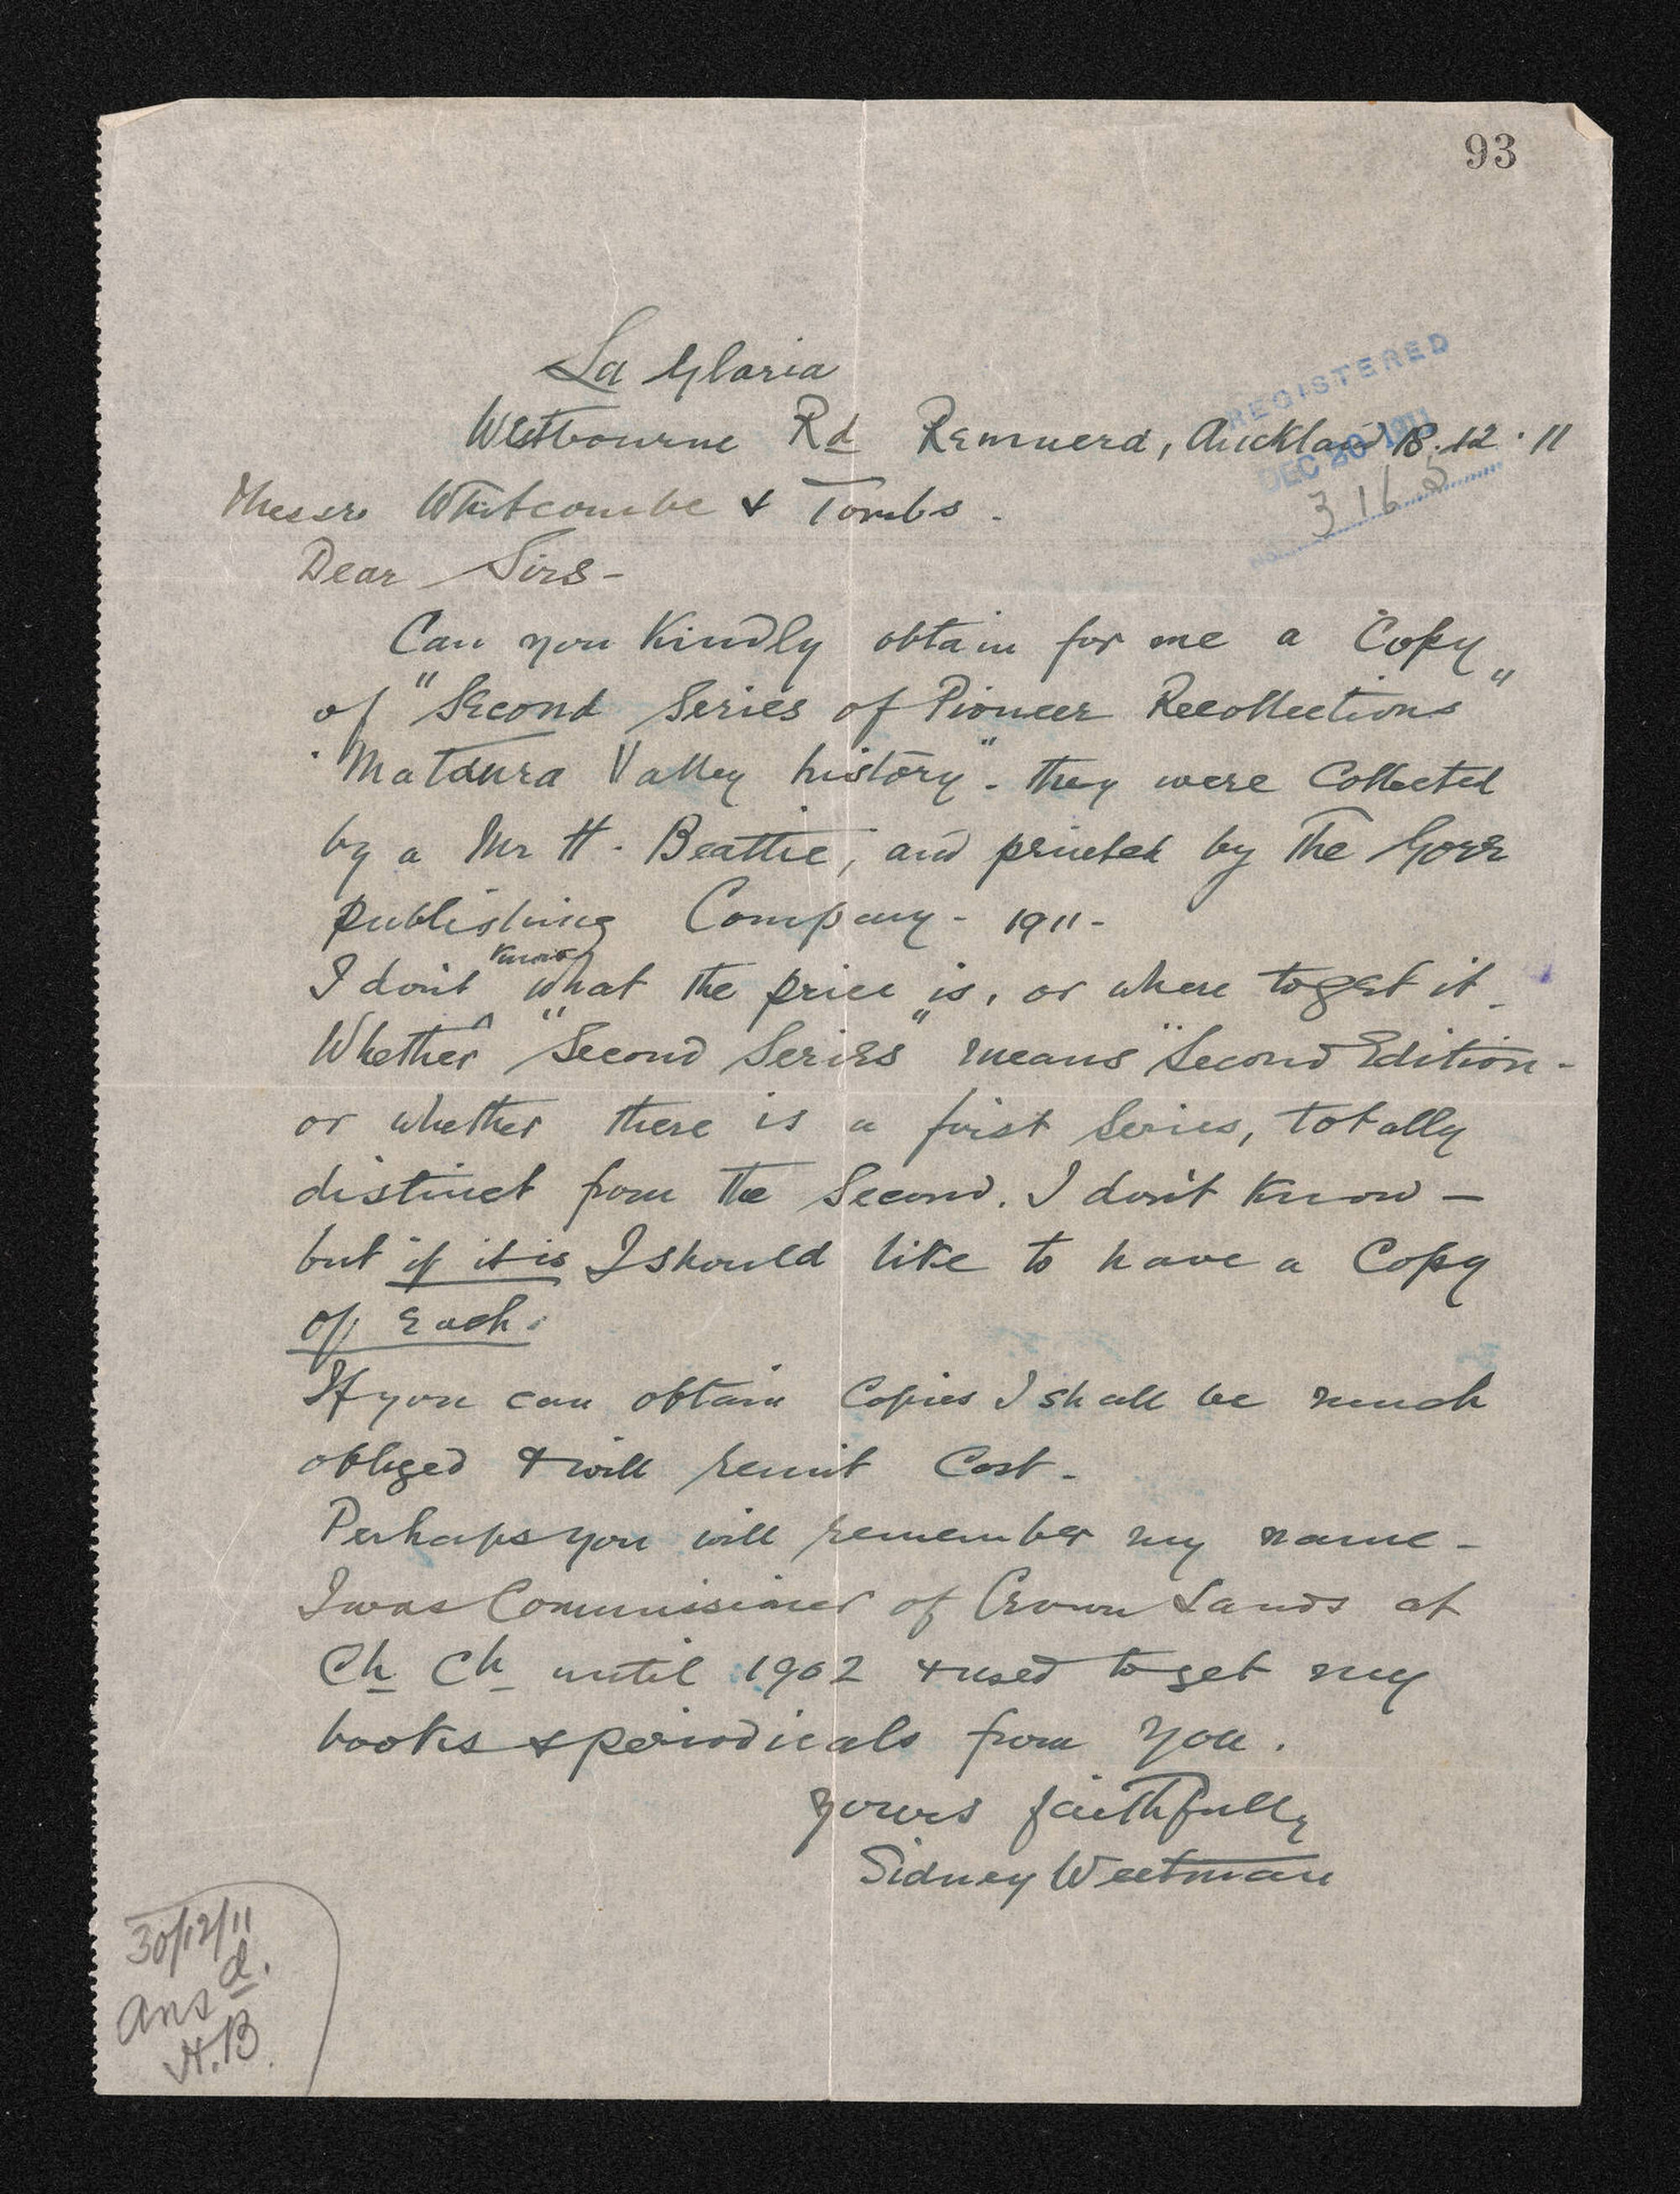 93
La Gloria
Westbourne Rd Remuera, Auckland 18.12.11
REGISTERED
DEC 20 1911
3165
Messrs Whitcombe & Tombs.
Dear Sirs-
Can you Kindly obtain for me a Copy
of "Second Series of Pioneer Recollections"
"Mataura Valley history". they were Collected
by a Mr H. Beattie, and printed by The Gore
publishing Company - 1911-
I don't know what the price is, or where to get it.
Whether "Second Series" means "Second Edition-
or whether there is a first Series, totally
distinct from the Second. I don't Know —
but if it is I should like to have a Copy
of Each.
If you can obtain Copies I shall be much
obliged & will remit Cost.
Perhaps you will remember my name -
I was Commissioner of Crown Lands at
Ch Ch until 1902 & used to get my
books & periodicals from you.
yours faithfully
Sidney Weetman
30/12/11
Ansd.
H.B.